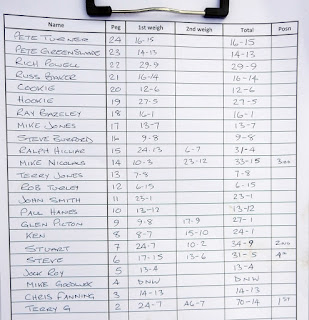 Name Peg 1st weigh 2nd weigh Total Posn
PETE TURNER 24 16-15 16-15
PETE GREENSLADE 23 14-13 14-13
RICH POWELL 22 29-9 29-9
RUSS BAKER 21 16-14 16-14
COOKIE 20 12-6 12-6
HOOKIE 19 27-5 27-5
RAY BAZELEY 18 16-1 16-1
MIKE JONES 17 13-7 13-7
STEVE 16 9-8 9-8
RALPH HILLIAR 15 24-13 6-7 31-4
MIKE NICHOLLS 14 10-3 23-12 33-15 3RD
TERRY JONES 13 7-8 7-8
ROB 12 6-15 6-15
JOHN SMITH 11 23-1 23-1
PAUL HANES 10 13-12 13-12
GLEN PICTON 9 9-8 17-9 27-1
KEN 8 8-7 15-10 24-1
STUART 7 24-7 10-2 34-9 2ND
STEVE 6 17-15 13-6 31-5 4TH
JOCK ROY 5 13-4 13-4
MIKE 4 DNW DNW
CHRIS FANNING 3 14-13 14-13
TERRY G 2 24-7 46-7 70-14 1ST